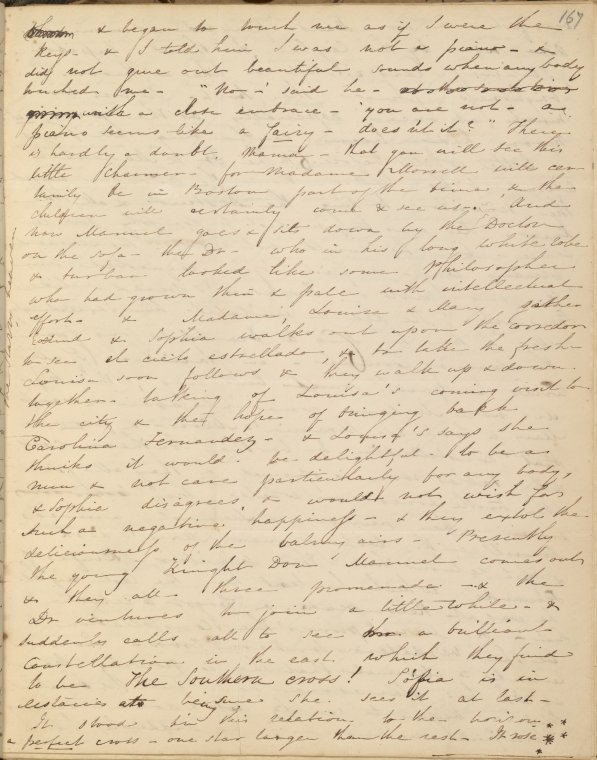 167
& began to touch me as if I were the
keys - & I told him I was not a piano - & 
did not give out beautiful sounds when any body
touched me - "No -" said he -
with a close embrace - "you are not - a
piano seems like a fairy - does n't it?" There
is hardly a doubt, Maman - that you will see this
little charmer - for Madame Morrell will cer
tainly be in Boston part of the time & the
children will certainly come & see us. And
now Manuel goes & sits down by the Doctor
on the sofa - the Dr - who in his long white robe
& turban looked like some Philosopher
who had grown thin & pale with intellectual
efforts - & Madame, Louisa & Mary gather
& Sophia walks out upon the corridor
to see el cielo estrellado, & to take the fresh -
Louisa soon follows & they walk up & down
together - talking of Louisa's coming visit to
the city & the hope of bringing back
Carolina Fernandez - & Louisa says she
thinks it would be delightful - to be a
nun & not care particularly for any body,
& Sophia disagrees & would not wish for
such a negative happiness - & they extol the
deliciousness of the balmy airs - Presently
the young Knight Don Manuel comes out,
& they all three promenade - & the
Dr ventures to join a little while - &
suddenly calls all to see a brilliant
constellation in the east which they find
to be The Southern cross! Sophia is in
ecstacies at being sure she sees it at last -
It stood in this relation to the horizon
a perfect cross - one star larger than the rest - It rose